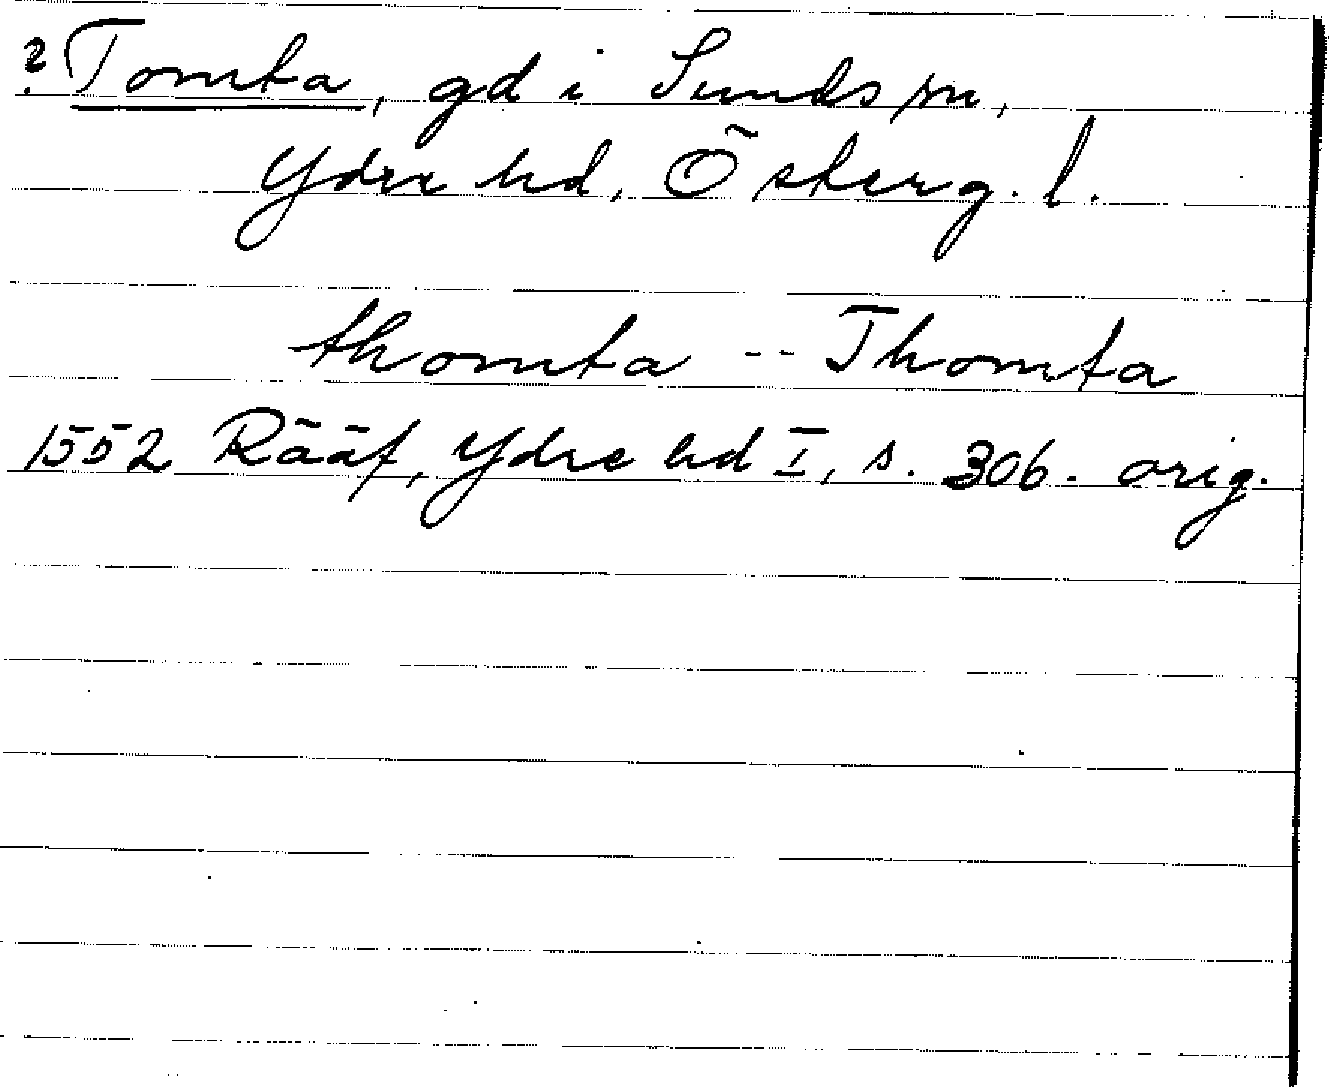 ? Tomta, gd i Sunds sn,
Ydre hd, Österg. l.
thomta -- Thomta
1552 Rääf, Ydre hd I, s. 306. orig.